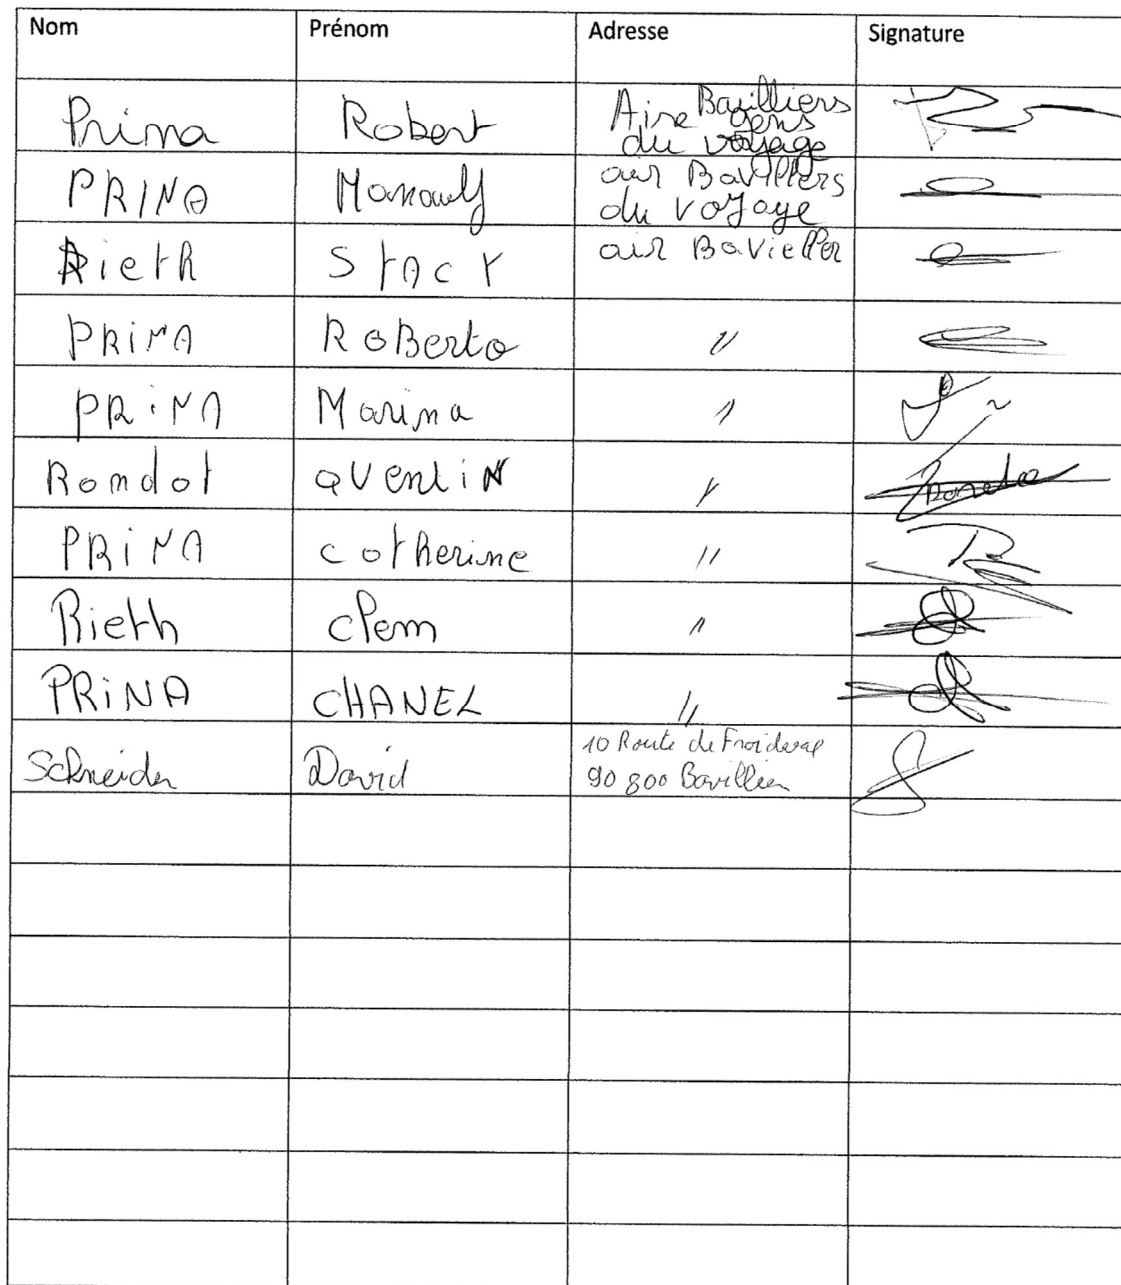 Nom Prénom Adresse Signature
Prina Robert Aire Bavilliers
gens
du voyage
PRINA air Bavillers
du voyage
Rieth Stacy air Bavieller
PRINA RoBerto //
PRiNA Marina //
Rondot quentin //
PRiNA catherine //
Rieth clem //
PRiNA CHANEL //
Schneider David 10 Route de Froideval
90 800 Bavilliers